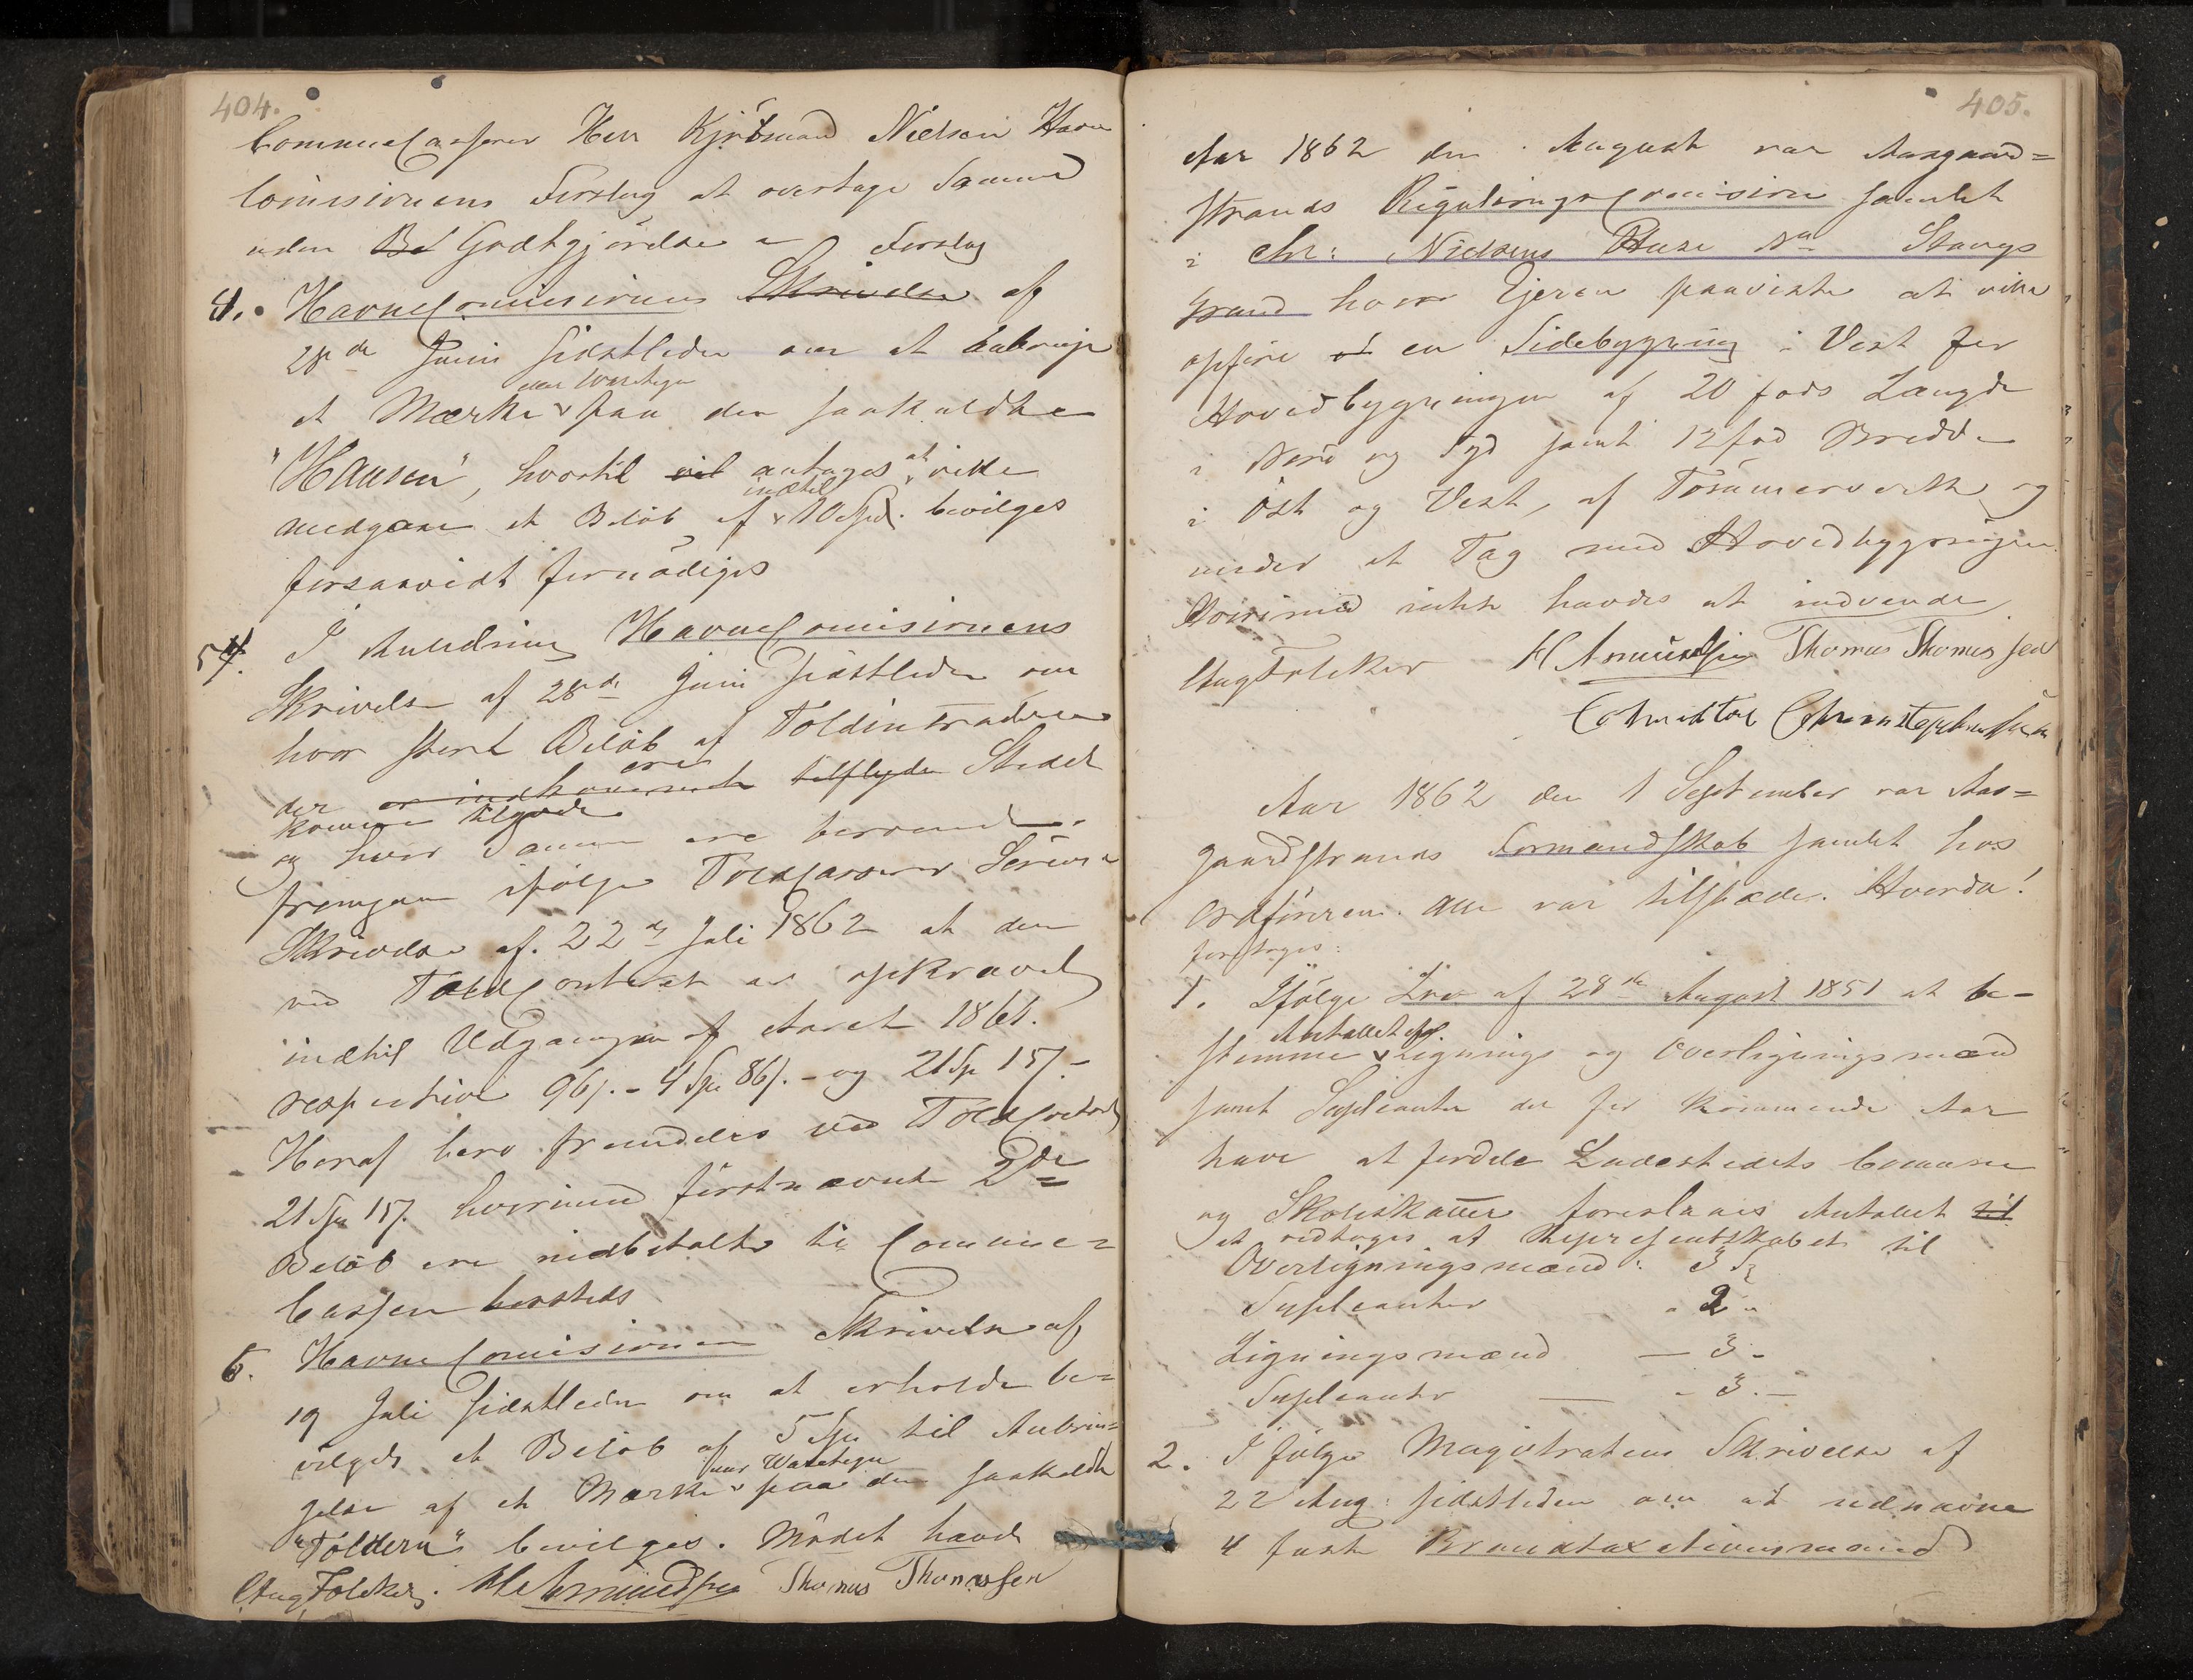 404.
Commuecasserer Herr Kjøbmand Nielsen Havne
Comissionens Forslag at overtage Samme
uden Be Godtgjörelse  Forslag
4. HavneComissionens Skrivelse af
28de Juni sidstleden om at anbringe
eller Waretegn
et Mærke paa den saakaldte
"Hausen", hvortil vil antages at ville
indtil
medgaae et Belöb af 10 Spd. bevilges
forsaavidt fornödiges
5. I Anledning HavneComisionens
Skrivelse af 28de Juni sidstleden om
hvor stort Belöb af Toldintraderne
ere
der er indkommende tilflyder Stedet
komme tilgode
og hvor Samme ere beroende.
fremgaar ifölge Toldcasserer Sörens
Skrivelse af 22de Juli 1862 at der
ved Toldcontoret er opkrævet
indtil Udgangen af Aaret 1861.
respective 96 s. - 4 Spd 86 s. - og 21 Sp 15 s. -
Heraf bero fremdeles ved Toldcontoret
21 Spd 15 s. hvorimod förstnævnte 2de
Belöb ere indbetalte til Commune=
Cassen hersteds
6. HavneComissionen Skrivelse af
19 Juli sidstleden om at erholde be=
vilget et Belöb af 5 Spd til Anbrin=
eller Waretegn
gelse af et Mærke paa den saakaldte
"Tolderen" bevilges. Mödet hævet
Aug Folcker. H Amundsen Thomas Thomassen
405.
Aar 1862 den   August var Aasgaard=
strands ReguleringsComision samlet
i Chr: Nielsens Huse No   Stangs
grund hvor Ejeren paaviste at ville
opföre et en Sidebygning i Vest for
Hovedbygningen af 20 fods Længde
i Nord og Syd samt 12 fod Bredde
i Öst og Vest, af Tömmerverk og
under et Tag med Hovedbygningen
Hvorimod intet havdes at indvende
Aug Folcker H Amundsen Thomas Thomassen
Christoffersen
Aar 1862 den 1 September var Aas=
gaardstrands Formandskab samlet hos
Ordföreren. Alle var tilstæde. Hvorda!
foretoges:
1. Ifölge Lov af 28de August 1851 at be-
Antallet af
stemme Lignings og Overligningsmænd
samt Supleanter der for kommende Aar
have at fordele Ladestedets Comune
og Skoleskatter foreslaaes Antallet til
at vedtages af Representskabet til
Overligningsmænd: 3
Supleanter - 2 "
Ligningsmænd — 3 -
Supleanter — - 3. —
2. I fölge Magistratens Skrivelse af
22 Aug: sidstleden om at udnævne
4 faste Brandtaxationsmænd